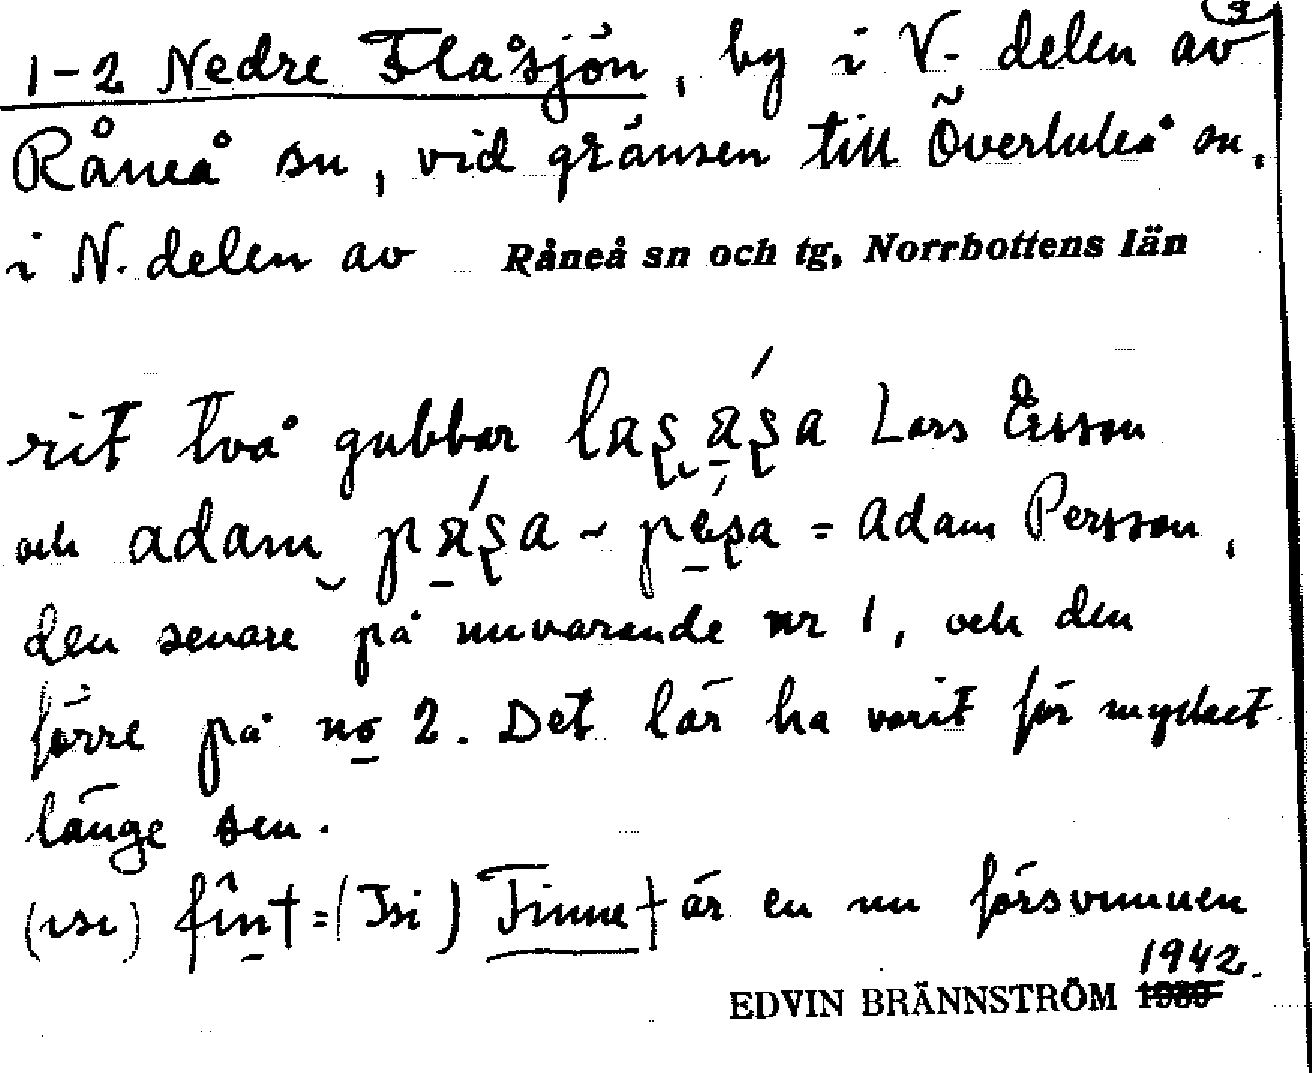 3
1-2 Nedre Flåsjön, by i V. delen av
Råneå sn, vid gränsen till Överluleå sn,
i N. delen av Råneå sn och tg, Norrbottens län
rit två gubbar Lars Ersson
och adam = Adam Persson,
den senare på nuvarande nr 1, och den
förre på no 2. Det lär ha varit för mycket
länge sen.
(ısı) = (Isi) Finne† är en nu försvunnen
1942.
EDVIN BRÄNNSTRÖM